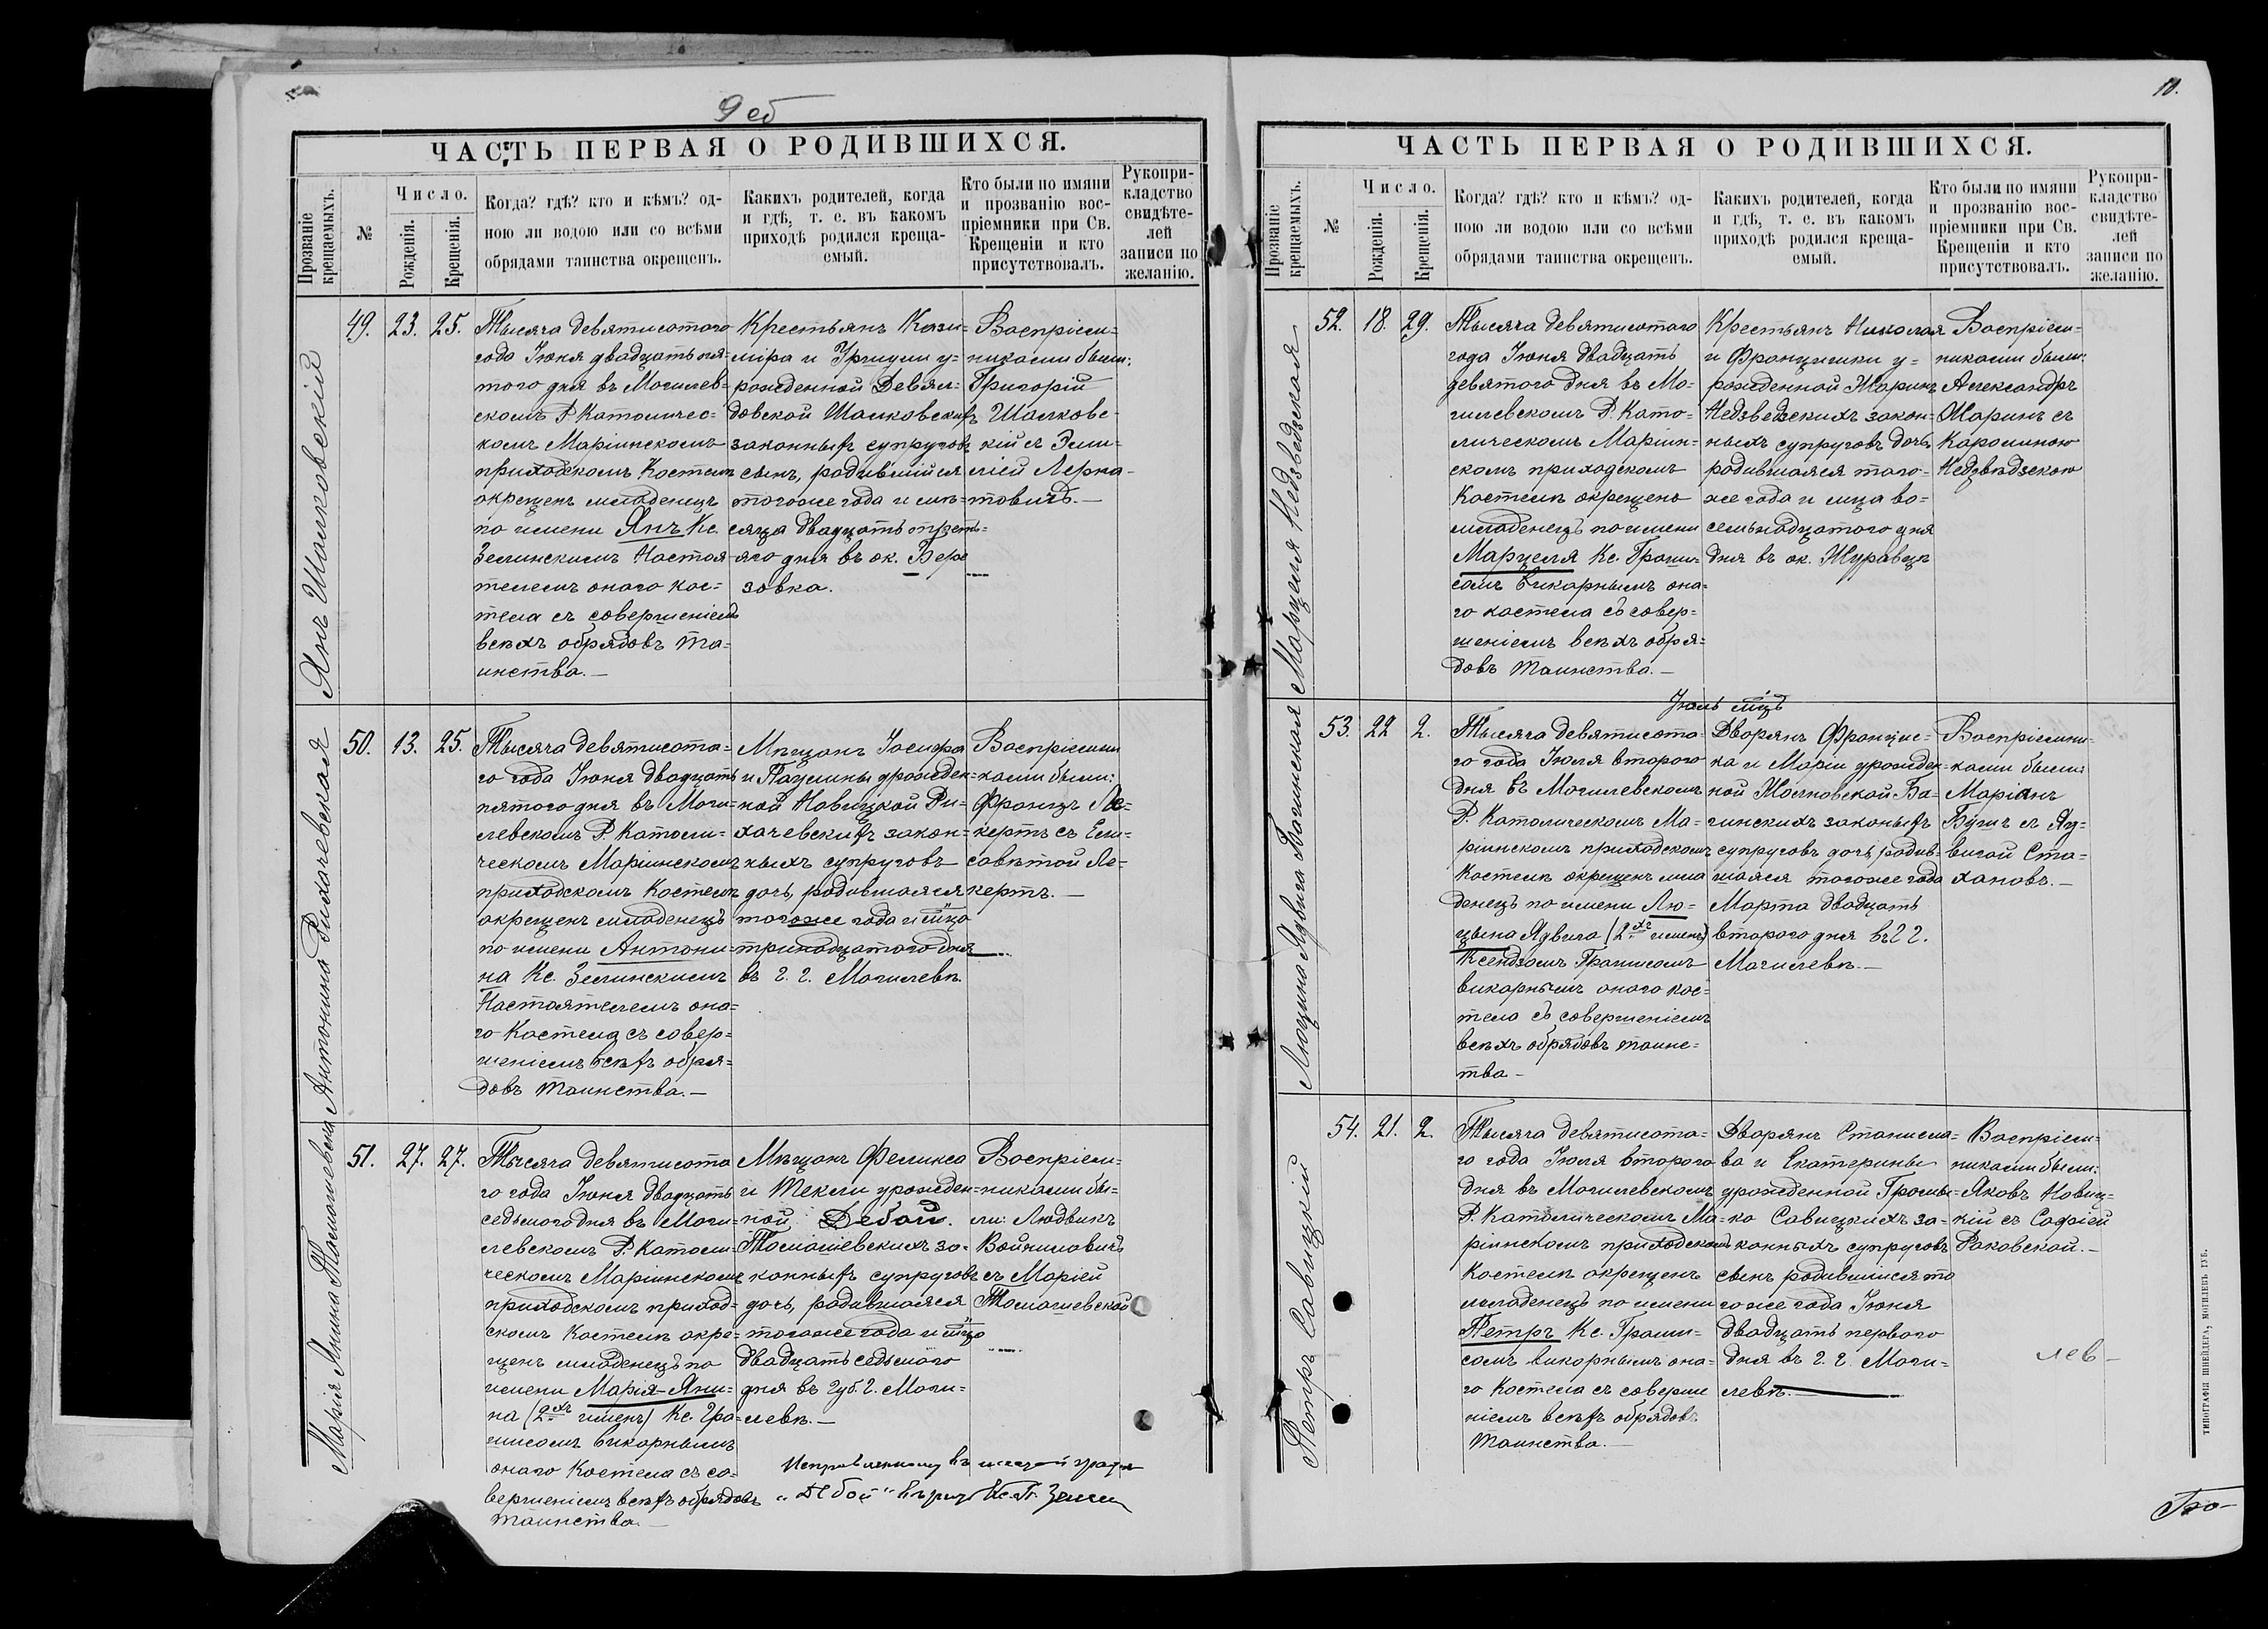 9 об
ЧАСТЬ ПЕРВАЯ О РОДИВШИХСЯ.
Прозваніе
крещаемыхъ.
№
Число.
Рожденія.
Крещенія.
Когда? гдѣ? кто и кѣмъ? од-
ною ли водою или со всѣми
обрядами таинства окрещенъ.
Какихъ родителей, когда
и гдѣ, т. е. въ какомъ
приходѣ родился креща-
емый.
Кто были по имяни
и прозванію вос-
пріемники при Св.
Крещеніи и кто
присутствовалъ.
Рукопри-
кладство
свидѣте-
лей
записи по
желанію.
Янъ Шалковскій
49.
23.
25.
Тысяча девятисотого
года Іюня двадцать пя-
того дня въ Могилев-
скомъ Р. Католичес-
комъ Маріинскомъ
приходскомъ Костелѣ
окрещенъ младенецъ
по имени Янъ Кс.
Зелинскимъ Настоя-
телемъ оного кос-
тела съ совершеніемъ
всѣхъ обрядовъ та-
инства.—
Крестьянъ Кази-
міра и Уршули у-
рожденной Девял-
довской Шалковскихъ
законныхъ супруговъ
сынъ, родившійся
тогоже года и мѣ-
сяца двадцать треть-
яго дня въ ок. Бере
зовка.
Воспріем-
никами были:
Григорій
Шалковс-
кій съ Эми-
ліей Лерка-
товичъ.—
Антонина Рихачевская
50.
13.
25.
Тысяча девятисота-
го года Іюня двадцать
пятого дня въ Моги-
левскомъ Р. Католи-
ческомъ Маріинскомъ
приходскомъ Костелѣ
окрещенъ младенецъ
по имени Антони-
на Кс. Зелинскимъ
Настоятелемъ она-
го Костела съ совер-
шеніемъ всѣхъ обря-
довъ таинства.—
Мѣщанъ Іосифа
и Паулины урожден-
ной Новицкой Ри-
хачевскихъ закон-
ныхъ супруговъ
дочь, родившаяся
тогоже года и мца
тринадцатого дня
въ г. г. Могилевѣ.
Воспріемни
ками были:
Францъ Ле-
кертъ съ Ели-
саветой Ле-
кертъ.—
Марія Янина Томашевска
51.
27.
27.
Тысяча девятисота
го года Іюня двадцать
седьмого дня въ Моги-
левскомъ Р. Католи-
ческомъ Маріинскомъ
приходскомъ приход-
скомъ Костелѣ окре-
щенъ младенецъ по
имени Марія-Яни-
на (2хъ именъ) Кс. Гра-
шисомъ викарнымъ
оного Костела съ со-
вершеніемъ всѣхъ обрядовъ
таинства.—
Мѣщанъ Феликса
и Текли урожден-
ной Дебой.
Томашевскихъ за-
конныхъ супруговъ
дочь, родившаяся
тогоже года и мца
двадцать седьмого
дня въ губ. г. Моги-
левѣ.—
Воспріем-
никами бы-
ли: Людвикъ
Войниловичъ
съ Маріей
Томашевской
Исправленному въ графѣ
"Дебой" вѣрить Кс. П. Зелин
10.
ЧАСТЬ ПЕРВАЯ О РОДИВШИХСЯ.
Прозваніе
крещаемыхъ.
№
Число.
Рожденія.
Крещенія.
Когда? гдѣ? кто и кѣмъ? од-
ною ли водою или со всѣми
обрядами таинства окрещенъ.
Какихъ родителей, когда
и гдѣ, т. е. въ какомъ
приходѣ родился креща-
емый.
Кто были по имяни
и прозванію вос-
пріемники при Св.
Крещеніи и кто
присутствовалъ.
Рукопри-
кладство
свидѣте-
лей
записи по
желанію.
Марцеля Недзведзская
52.
18.
29.
Тысяча девятисотого
года Іюня двадцать
девятого дня въ Мо-
гилевскомъ Р. Като-
лическомъ Маріин-
скомъ приходскомъ
Костелѣ окрещено
младенецъ по имени
Марцеля Кс. Граши-
сомъ викарнымъ она-
го костела съ совер-
шеніемъ всѣхъ обря-
довъ таинства.—
Крестьянъ Николая
и Францишки у-
рожденной Жаринъ
Недзведзскихъ закон-
ныхъ супруговъ дочь
родившаяся того-
же года и мца во-
семьнадцатого дня
дня въ ок. Журавецъ
Воспріем-
никами были:
Александръ
Жаринъ съ
Каролиною
Недзведзскою
Іюль мцъ
Люцына Ядвига Багинская
53.
22
2.
Тысяча девятисота-
го года Іюля второго
дня въ Могилевскомъ
Р. Католическомъ Ма-
ріинскомъ приходскомъ
Костелѣ окрещенъ мла
денецъ по имени Лю-
цына Ядвига (2хъ именъ)
Ксендзомъ Грашисомъ
викарнымъ оного кос-
тела съ совершеніемъ
всѣхъ обрядовъ таинс-
тва—
Дворянъ Францис-
ка и Маріи урожден-
ной Малновской Ба-
гинскихъ законныхъ
супруговъ дочь, родив-
шаяся тогоже года
Марта двадцать
второго дня въ г г.
Могилевѣ.—
Воспріемни-
ками были:
Маріанъ
Бугинъ съ Яд-
вигой Ста-
хановъ.—
Петръ Савицкій
54.
21.
2.
Тысяча девятисота-
го года Іюля второго
дня въ Могилевскомъ
Р. Католическомъ Ма-
ріинскомъ приходскомъ
Костелѣ окрещенъ
младенецъ по имени
Петръ Кс. Граши-
сомъ викарнымъ она-
го Костела съ соверше
ніемъ всѣхъ обрядовъ
таинства.—
Дворянъ Станисла-
ва и Екатерины
урожденной Громы-
ко Савицкихъ за-
конныхъ супруговъ
сынъ родившійся то
гоже года Іюня
двадцать первого
дня въ г. г. Моги-
левѣ.—
Воспріем-
никами были:
Яковъ Новиц-
кій съ Софіей
Раковской.—
лев—
ТИПОГРАФІЯ ШНЕЙДЕРА, МОГИЛЕВЪ ГУБ.